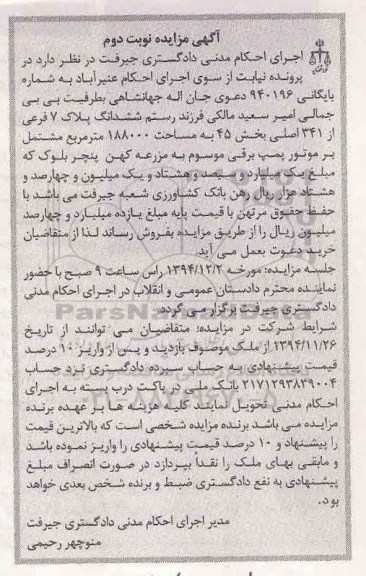 آگهی مزایده نوبت دوم
اجرای احکام مدنی دادگستری جیرفت در نظر دارد در
پرونده نیابت از سوی اجرای احکام عنبرآباد به شماره
بایگانی ۹۴۰۱۹۶ دعوی جان اله جهانشاهی بطرفیت بی بی
جمالی امیر سعید مالکی فرزند رستم ششدانگ پلاک ۷ فرعی
از ۳۴۱ اصلی بخش ۴۵ به مساحت ۱۸۸۰۰۰ مترمربع مشتمل
بر موتور پمپ برقی موسوم به مزرعه کهن پنچر بلوک که
مبلغ یک میلیارد و سیصد و هشتاد و یک میلیون و چهارصد و
هشتاد هزار ریال رهن بانک کشاورزی شعبه جیرفت می باشد با
حفظ حقوق مرتهن با قیمت پایه مبلغ یازده میلیارد و چهارصد
میلیون ریال را از طریق مزایده بفروش رساند لذا از متقاضیان
خرید دعوت بعمل می آید.
جلسه مزایده: مورخه ۱۳۹۴/۱۲/۲ راس ساعت ۹ صبح با حضور
نماینده محترم دادستان عمومی و انقلاب در اجرای احکام مدنی
دادگستری جیرفت برگزار می گردد.
شرایط شرکت در مزایده: متقاضیان می توانند از تاریخ
۱۳۹۴/۱۱/۲۶ از ملک موصوف بازدید و پس از واریز ۱۰ درصد
قیمت پیشنهادی به حساب سپرده دادگستری نزد حساب
۲۱۷۱۲۹۳۸۳۹۰۰۴ بانک ملی در پاکت درب بسته به اجرای
احکام مدنی تحویل نمایند کلیه هزینه ها بر عهده برنده
مزایده می باشد برنده مزایده شخصی است که بالاترین قیمت
را پیشنهاد و ۱۰ درصد قیمت پیشنهادی را واریز نموده باشد
و مابقی بهای ملک را نقداً بپردازد در صورت انصراف مبلغ
پیشنهادی به نفع دادگستری ضبط و برنده شخص بعدی خواهد
بود.
مدیر اجرای احکام مدنی دادگستری جیرفت
منوچهر رحیمی